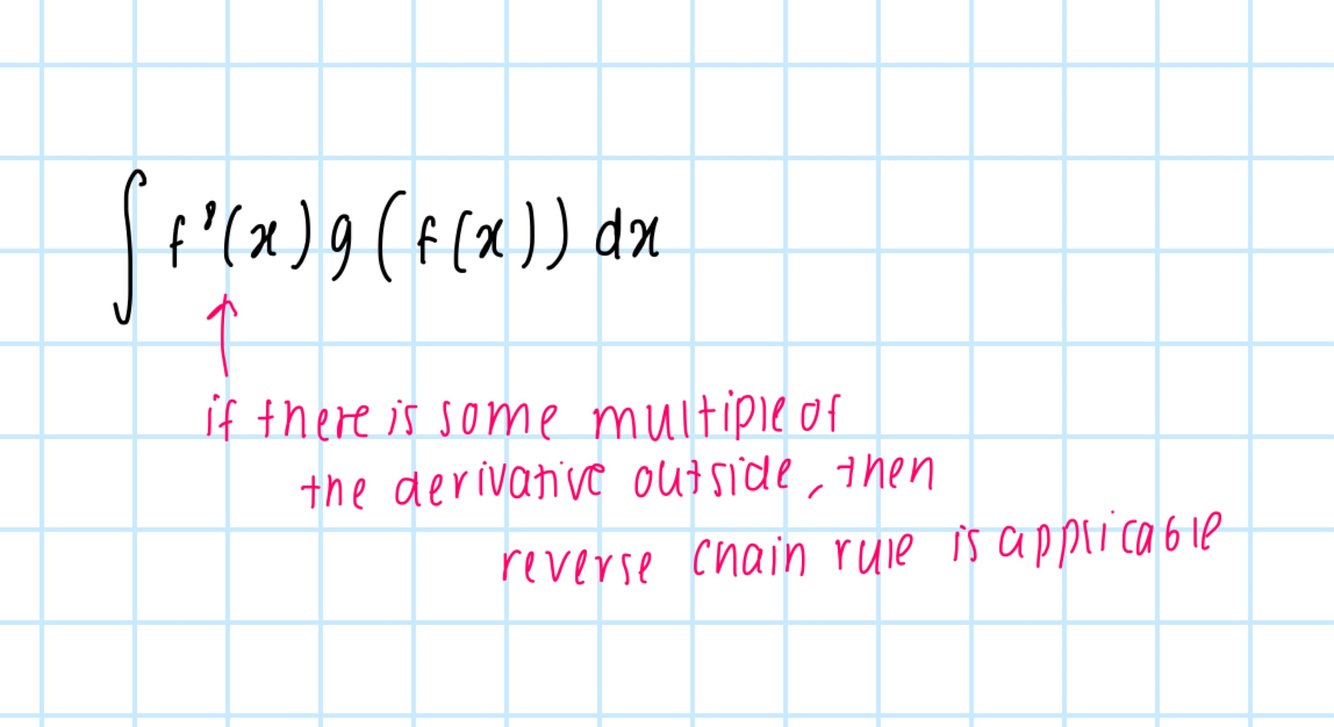 ∫ f'(x) g(f(x)) dx
if there is some multiple of
the derivative outside, then
reverse chain rule is applicable